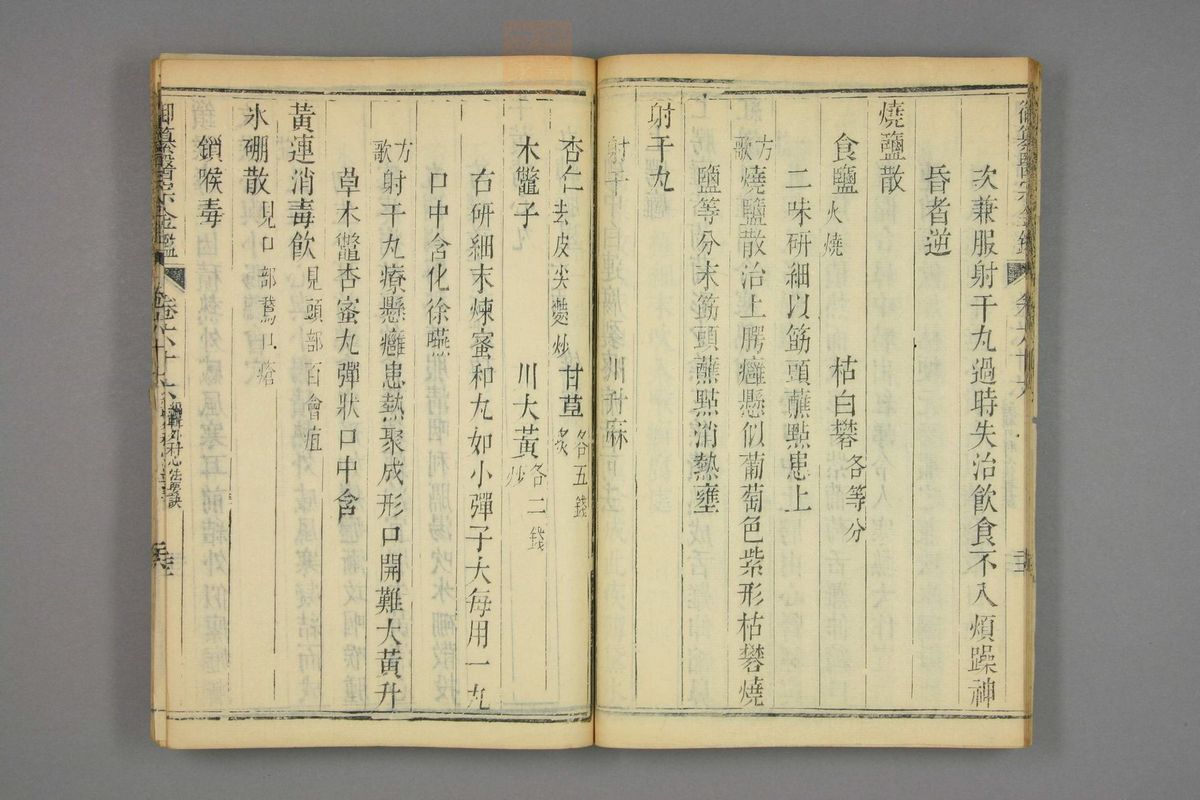 御纂醫宗金鑑 卷六十六
次兼服射干丸過時失治飲食不入煩躁神
昏者逆
燒鹽散
食鹽火燒 枯白礬各等分
二味研細以筯頭蘸點患上
方歌燒鹽散治上腭癰懸似葡萄色紫形枯礬燒
鹽等分末筯頭蘸點消熱壅
射干丸
射干 川升麻
杏仁去皮尖麩炒 甘草炙各五錢
木鼈子 川大黃炒各二錢
右研細末煉蜜和丸如小彈子大每用一丸
口中含化徐嚥
方歌射干丸療懸癰患熱聚成形口開難大黃升
草木鼈杏蜜丸彈狀口中含
黃連消毒飲見頭部百會疽
氷硼散見口部鵞口瘡
鎖喉毒
御纂醫宗金鑑 卷六十六 編輯外科心法要訣